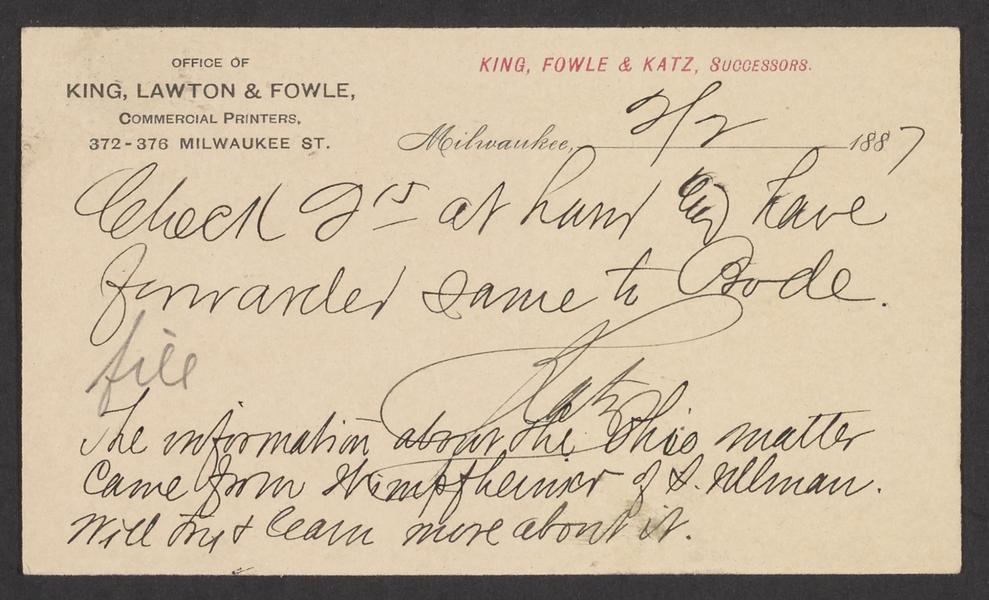 OFFICE OF
KING, LAWTON & FOWLE,
COMMERCIAL PRINTERS,
372-376 MILWAUKEE ST.
KING, FOWLE & KATZ, SUCCESSORS.
Milwaukee, 2/2 1887
Check 2 at hand have
forwarded same to Bode.
Katz
file
The information about the Ohio matter
came from Wimpfheimer of S. Ullman.
Will try & learn more about it.